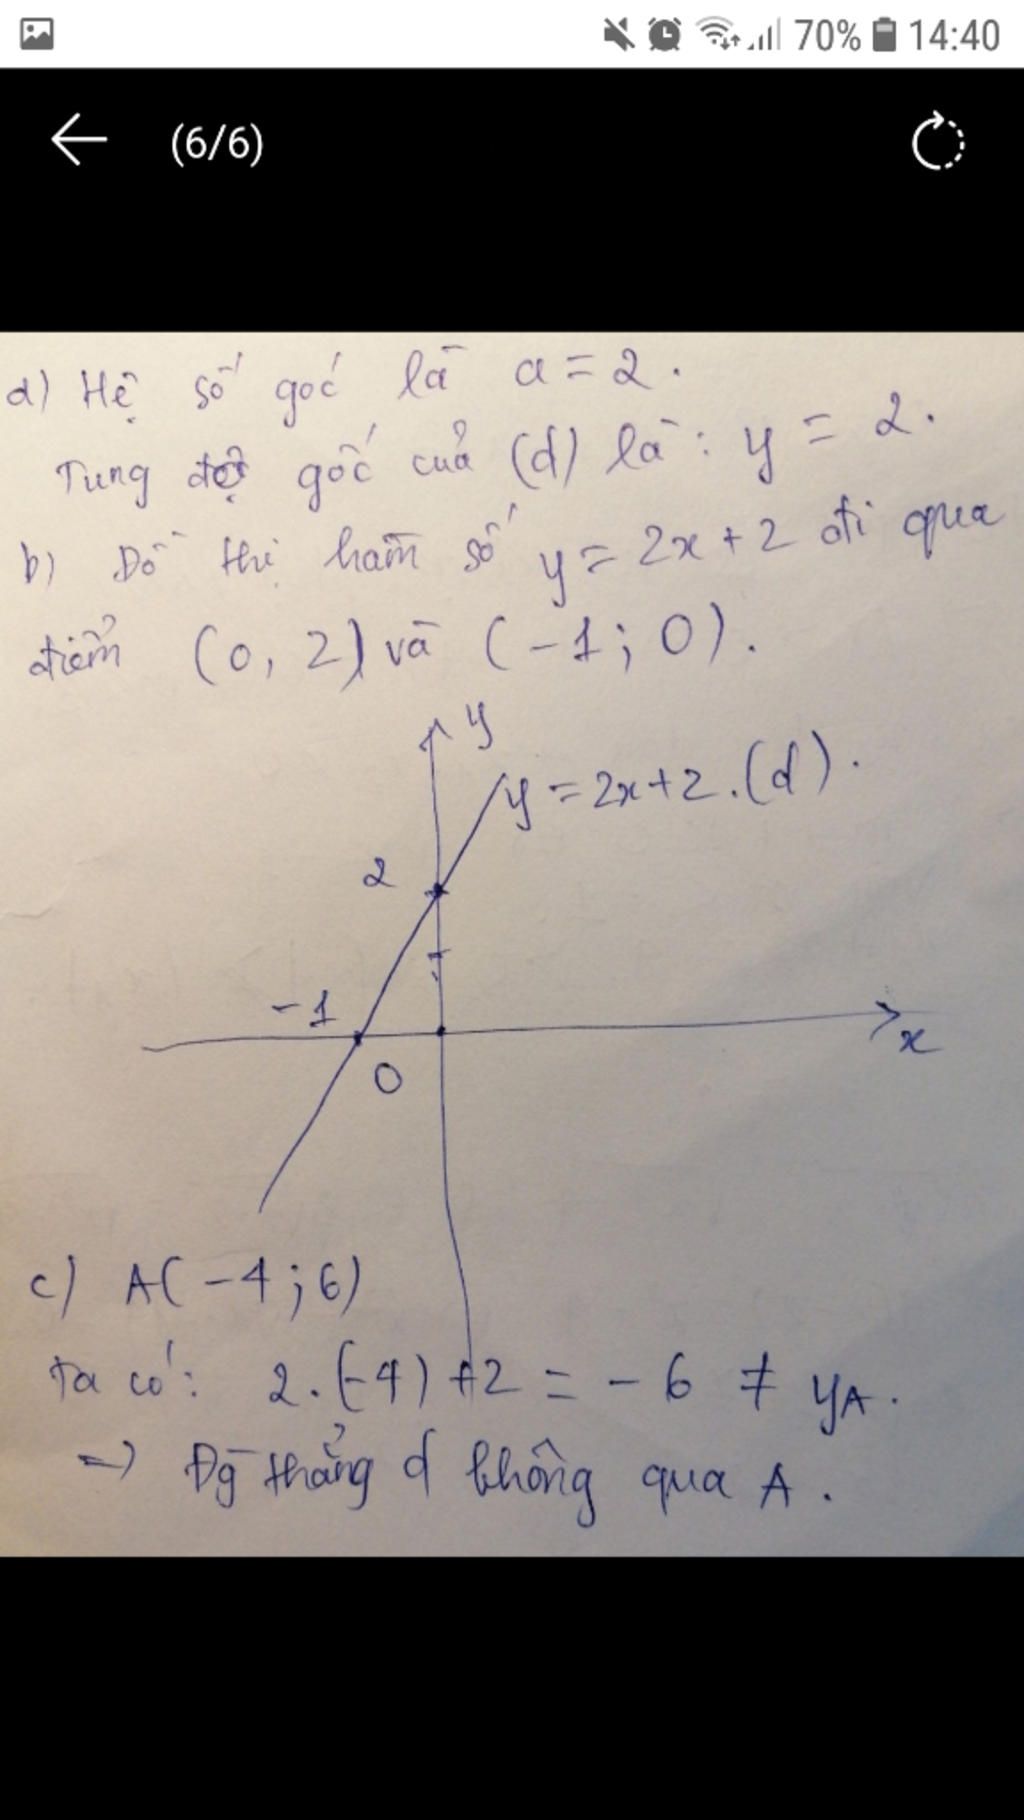 70% 14:40
(6/6)
a) Hệ số góc là a = 2.
Tung độ gốc của (d) là: y = 2.
b) Đồ thị hàm số y = 2x + 2 đi qua
điểm (0, 2) và (-1; 0).
y
y = 2x + 2. (d).
2
-1
x
0
c) A(-4; 6)
Ta có: 2.(-4) + 2 = -6 ≠ yA.
=> Đg thẳng d không qua A.